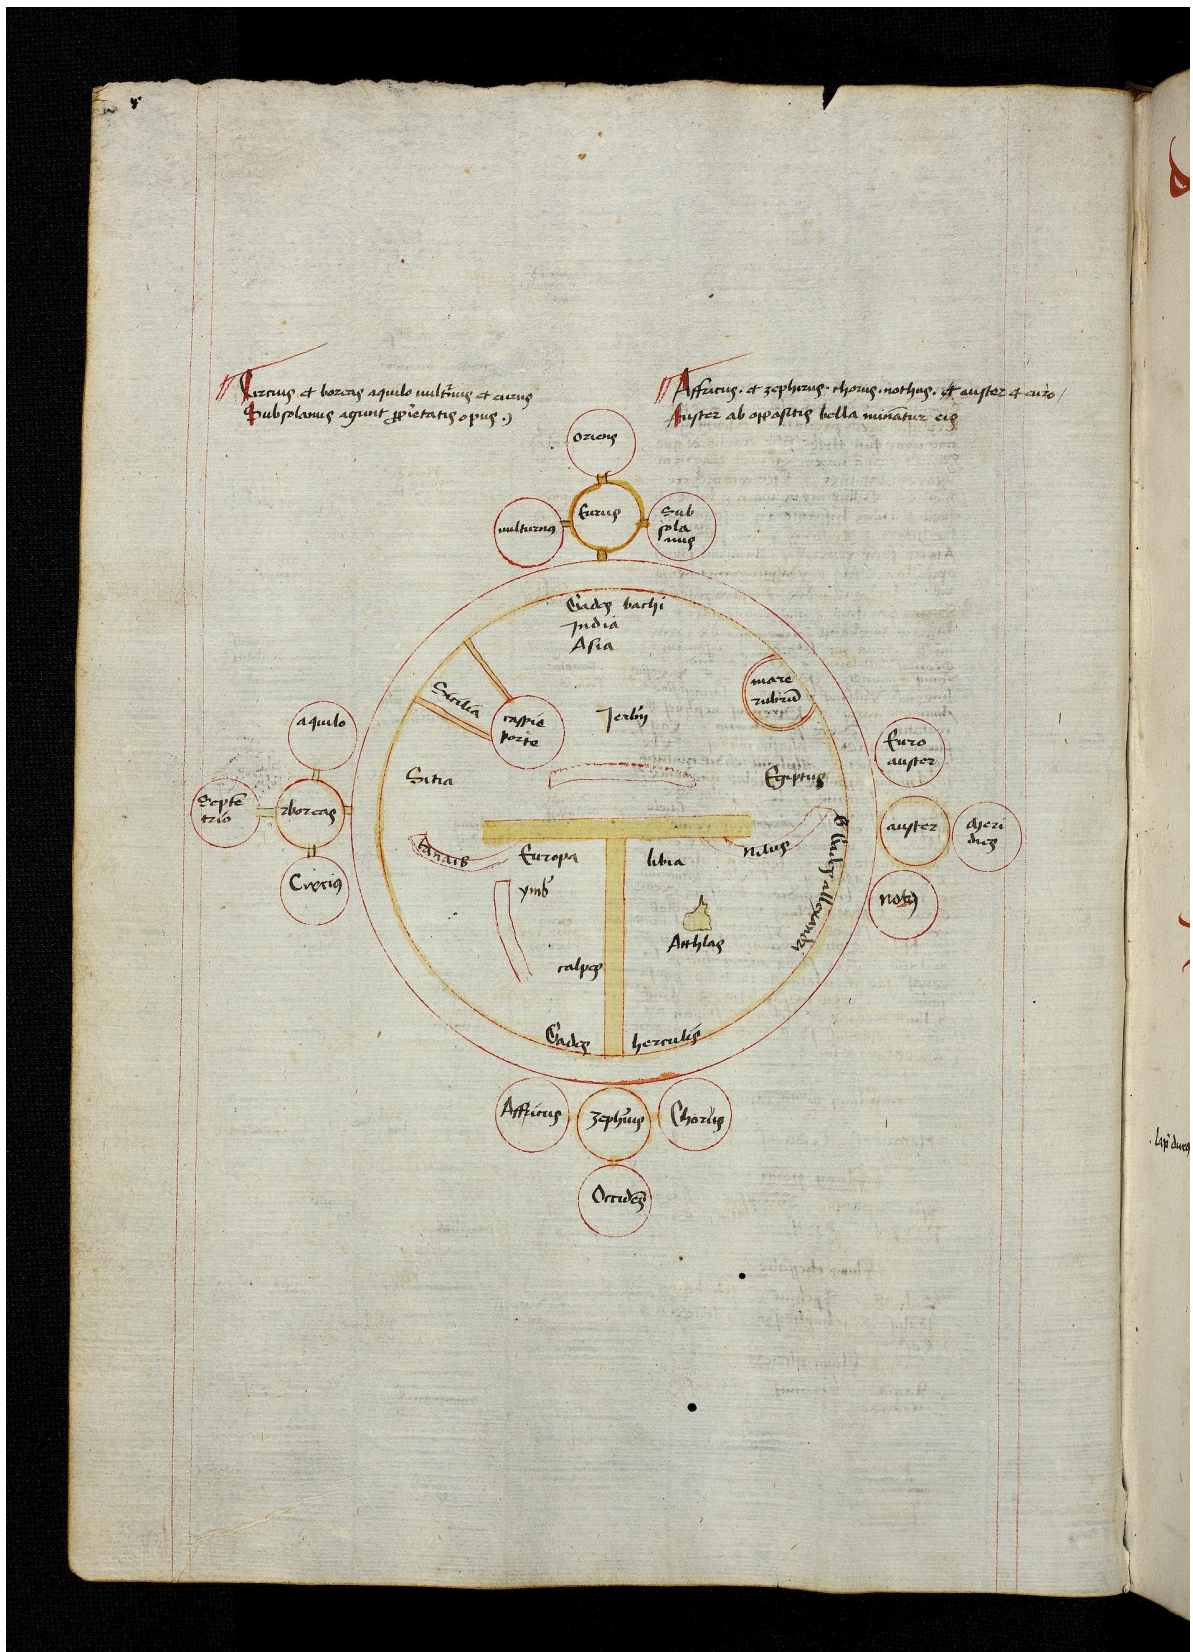 Circius et boreas aquilo vult̄nus et eurus
Subsolanus agunt ꝓp̄ietatis opus
Affricus · et zephirus · chorus · nothus · et auster et euro
Auster ab oppositis bella minātur eis
Oriens
Eurus
vulturnꝰ
Sub
sola
nus
Gades bachi
India
Asia
mare
rubrū
Sicilia
caspie
porte
aquilo
Euro
auster
Sitia
Egiptus
Septē
trio
boreas
auster
Meri
dies
tanais
Europa
libia
nilus
Circiꝰ
notꝰ
Atthlas
calpes
Gades
herculis
Affricus
Chorus
Occidēs